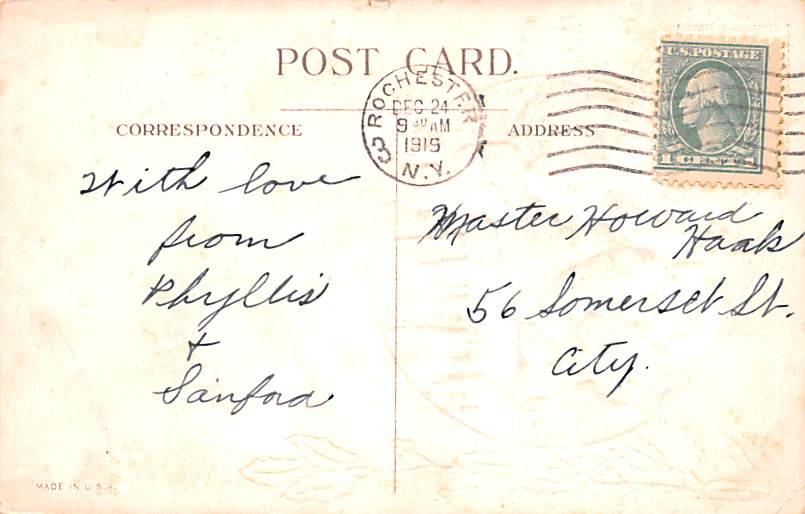 POST CARD.
CORRESPONDENCE
ADDRESS
ROCHESTER
DEC 24
9 30 AM
1919
N.Y.
3
U.S. POSTAGE
1 CENT 1
With love
from
Phyllis
+
Sanford
Master Howard
Haak
56 Somerset St.
City.
MADE IN U.S.A.